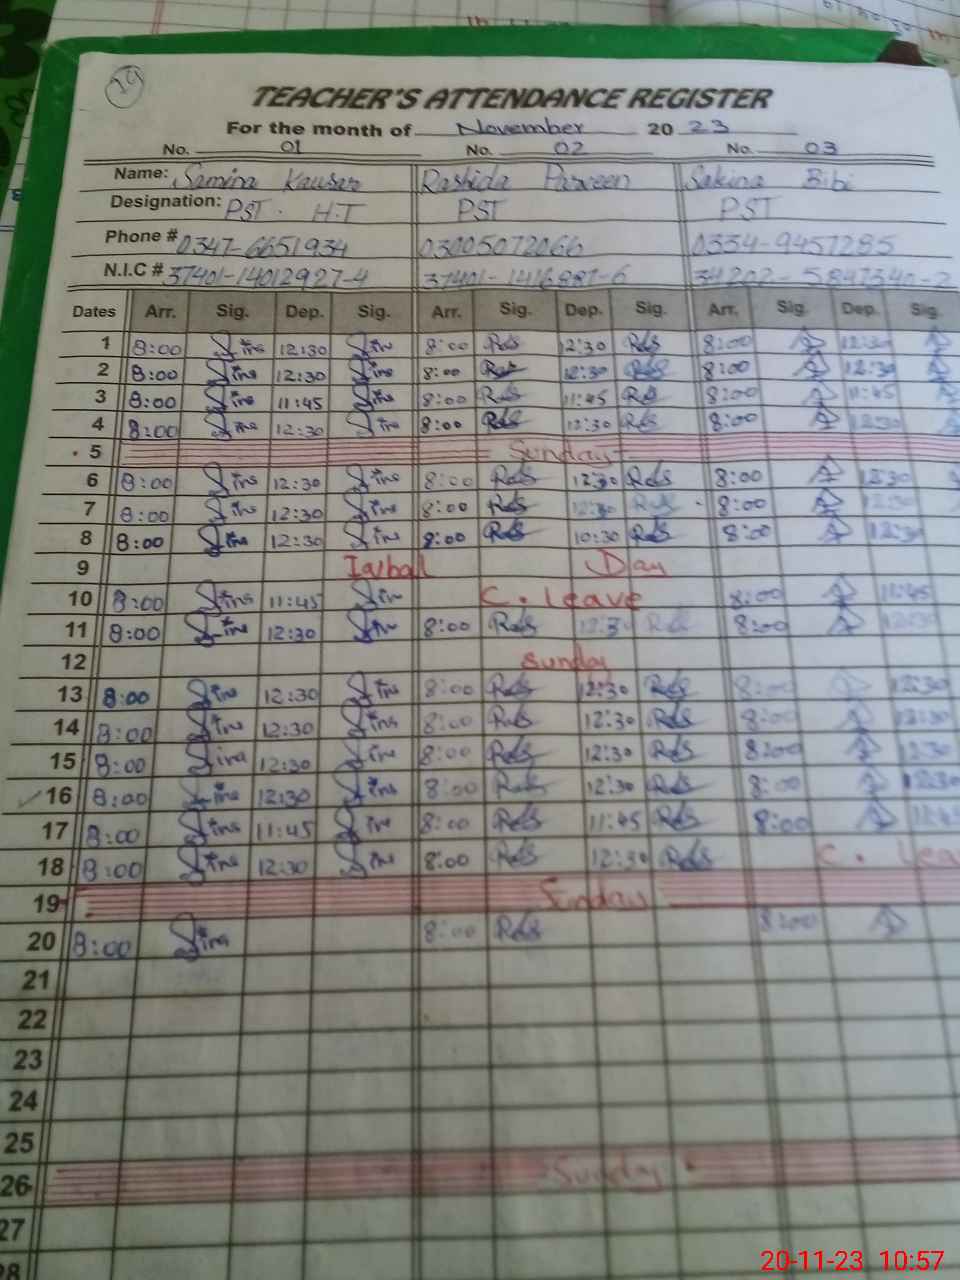 19
TEACHER'S ATTENDANCE REGISTER
For the month of November 20 23
No. 01 No. 02 No. 03
Name: Samina Kausar Rashida Parveen Sakina Bibi
Designation: PST. H.T PST PST
Phone # 0347-6651934 03005072066 0334-9457285
N.I.C # 37401-14012927-4 37401-1416881-6 34202-5847340-2
Dates Arr. Sig. Dep. Sig. Arr. Sig. Dep. Sig. Arr. Sig. Dep. Sig.
1 8:00 12:30 8:00 Rds 12:30 Rds 8:00 12:30
2 8:00 12:30 8:00 12:30 Rds 8:00 12:30
3 8:00 11:45 8:00 Rds 11:45 Rds 8:00 11:45
4 8:00 12:30 8:00 Rds 12:30 Rds 8:00 12:30
5 Sunday
6 8:00 12:30 8:00 Rds 12:30 Rds 8:00 12:30
7 8:00 12:30 8:00 Rds 12:30 Rds 8:00 12:30
8 8:00 12:30 8:00 Rds 10:30 Rds 8:00 12:30
9 Iqbal Day
10 8:00 11:45 C. leave 8:00 11:45
11 8:00 12:30 8:00 Rds 12:30 Rds 8:00 12:30
12 Sunday
13 8:00 12:30 8:00 Rds 12:30 Rds 8:00 12:30
14 8:00 12:30 8:00 Rds 12:30 Rds 8:00 12:30
15 8:00 12:30 8:00 Rds 12:30 Rds 8:00 12:30
16 8:00 12:30 8:00 Rds 12:30 Rds 8:00 12:30
17 8:00 11:45 8:00 Rds 11:45 Rds 8:00 11:45
18 8:00 12:30 8:00 Rds 12:30 Rds C. Lea
19 Sunday
20 8:00 8:00 Rds 8:00
21
22
23
24
25
26 Sunday
27
28
20-11-23 10:57